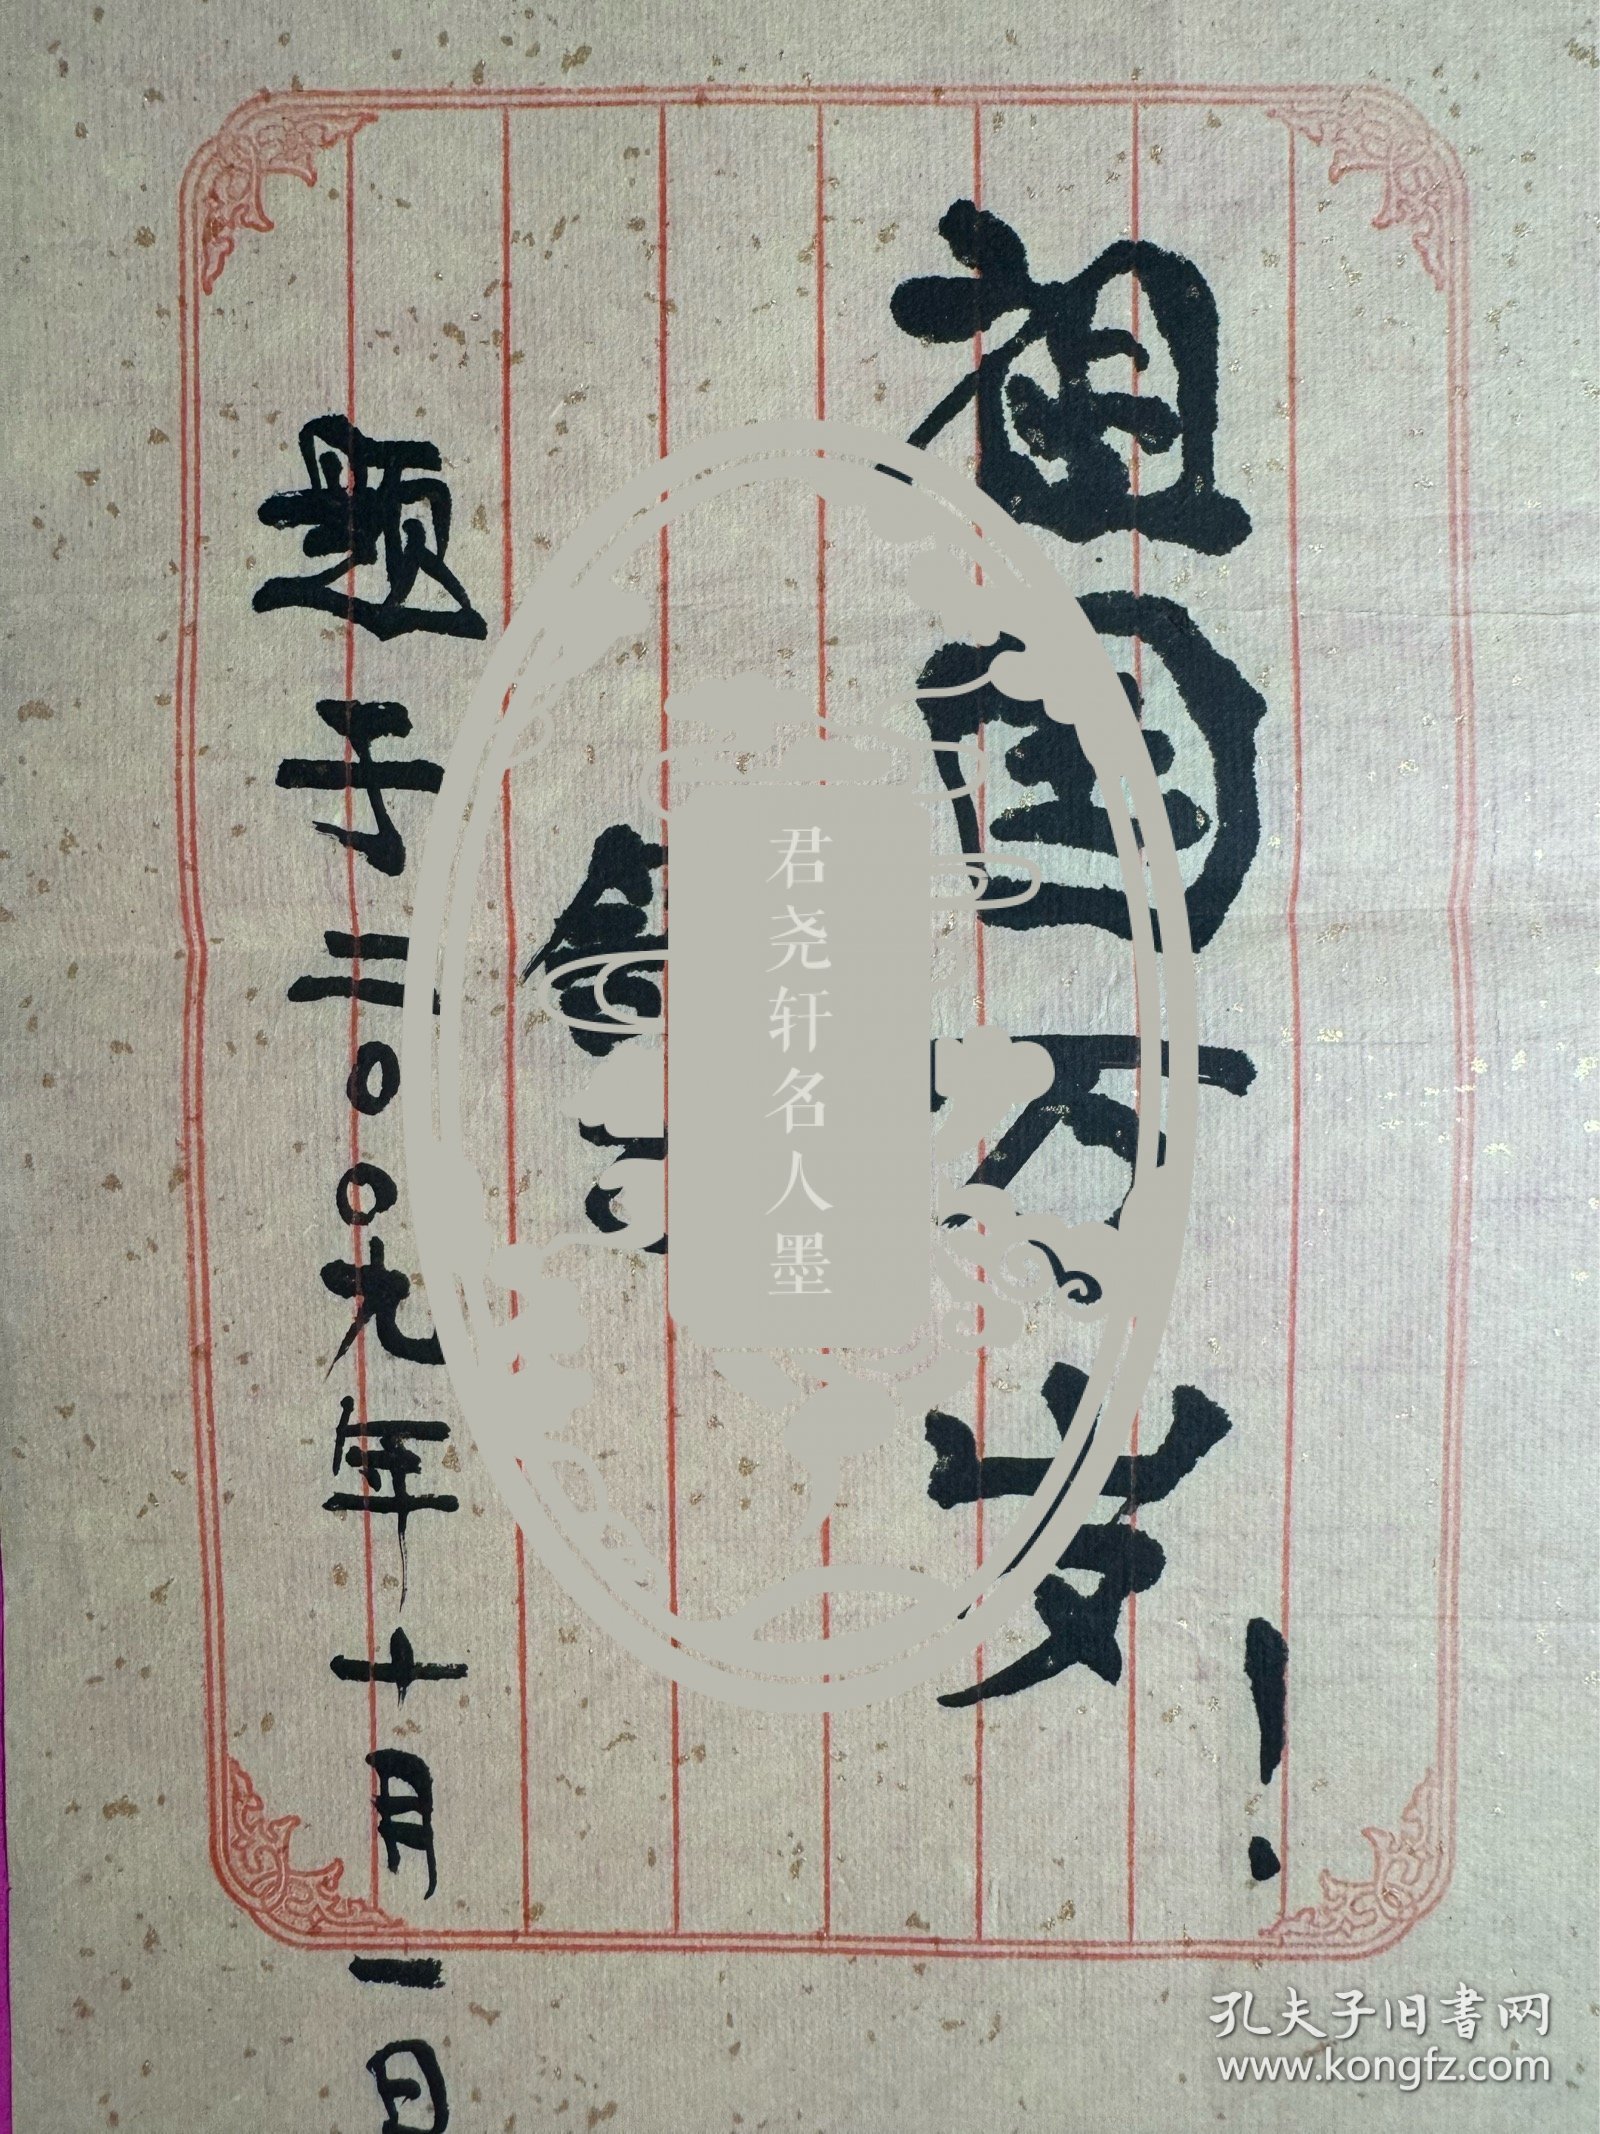 祖国万岁！
题于二〇〇九年十月一日
君尧轩名人墨
孔夫子旧书网
www.kongfz.com